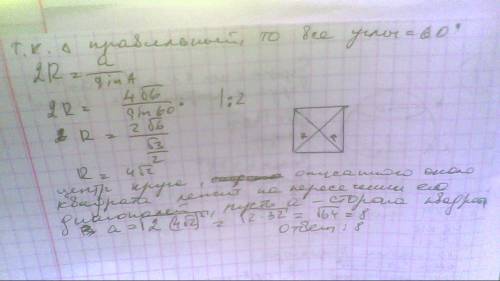 т.к. Δ правильный, то все углы = 60°
2R = a / sin A
2R = 4√6 / sin 60 : 1:2
R = 2√6 / (√3 / 2)
R = 4√2
центр круга, описанного около
квадрата лежит на пересечении его
диагоналей, пусть a – сторона квадрата
a = √2 (4√2)² = √2·32 = √64 = 8
Ответ: 8